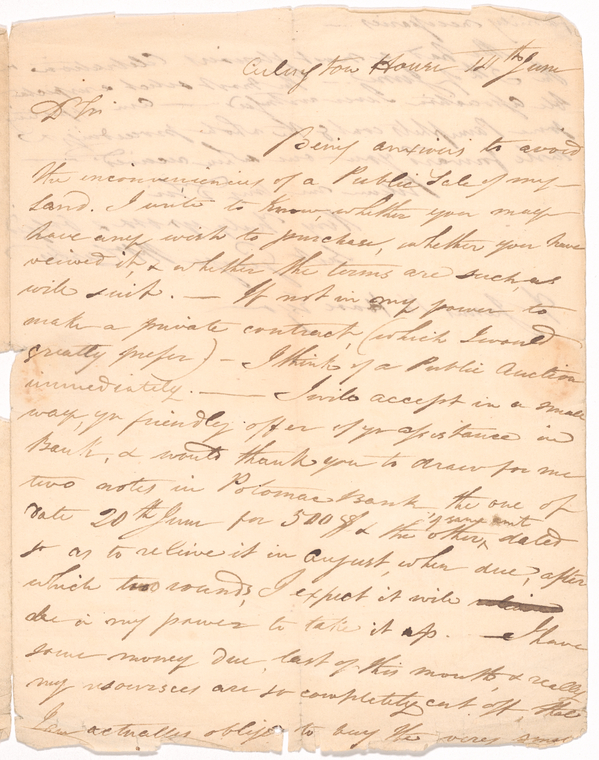 Arlington House 14th June
Dr Sir
Being anxious to avoid
the inconveniencies of a Public Sale of my
Land. I write to know, whether you may
have any wish to purchase, whether you have
veiwed it, & whether the terms are such as
will suit. — If not in my power to
make a private contract, (which I would
greatly prefer) — I think of a Public Auction
immediately. — I will accept in a small
way, yr friendly offer of yr assistance in
Bank, & would thank you to draw for me
two notes in Potomac Bank, the one of
date 20th June for 500$ & the other, of same amt dated
so as to releive it in August, when due, after
which two rounds, I expect it will
be in my power to take it up. — I have
some money due, last of this month, & really
my resources are so completely cut off, that
I am actually oblig'd to buy the very